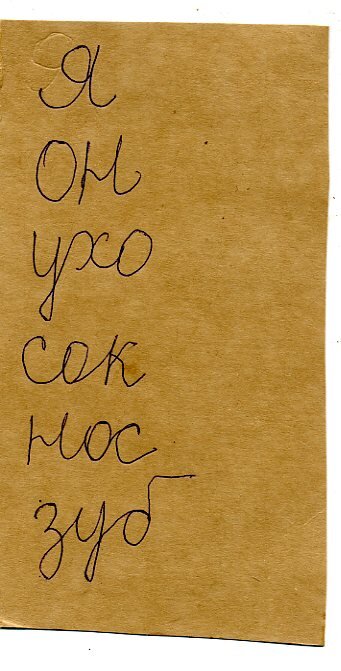 Я
он
ухо
сок
нос
зуб